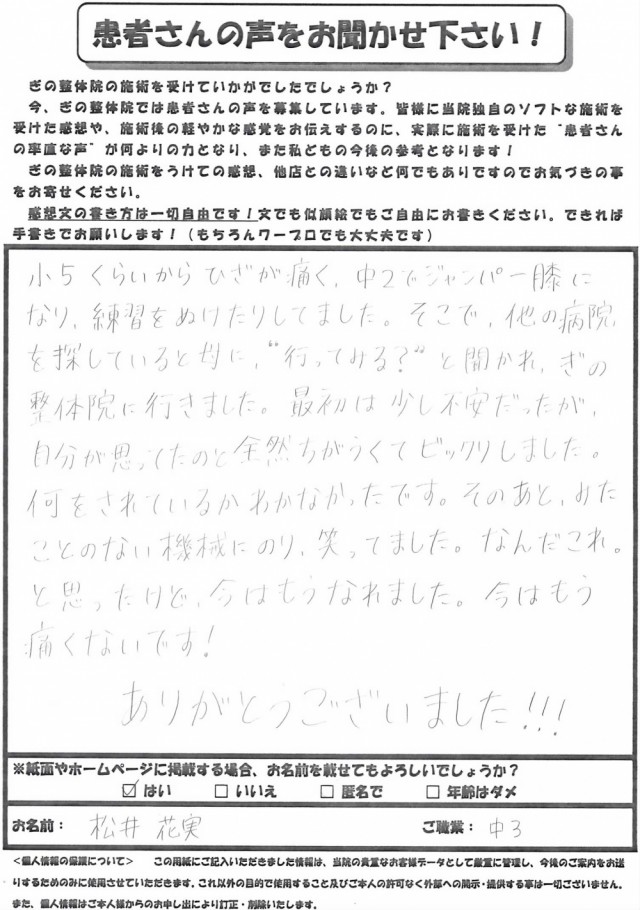 患者さんの声をお聞かせ下さい！
ぎの整体院の施術を受けていかがでしたでしょうか？
今、ぎの整体院では患者さんの声を募集しています。皆様に当院独自のソフトな施術を
受けた感想や、施術後の軽やかな感覚をお伝えするのに、実際に施術を受けた“患者さん
の率直な声”が何よりの力となり、また私どもの今後の参考となります！
ぎの整体院の施術をうけての感想、他店との違いなど何でもありですのでお気づきの事
をお寄せください。
感想文の書き方は一切自由です！文でも似顔絵でもご自由にお書きください。できれば
手書きでお願いします！（もちろんワープロでも大丈夫です）
小5くらいからひざが痛く、中2でジャンパー膝に
なり、練習をぬけたりしてました。そこで、他の病院
を探していると母に、“行ってみる？”と聞かれ、ぎの
整体院に行きました。最初は少し不安だったが、
自分が思ってたのと全然ちがうくてビックリしました。
何をされているかわかなかったです。そのあと、みた
ことのない機械にのり、笑ってました。なんだこれ。
と思ったけど、今はもうなれました。今はもう
痛くないです！
ありがとうございました!!!
※紙面やホームページに掲載する場合、お名前を載せてもよろしいでしょうか？
☑ はい □ いいえ □ 匿名で □ 年齢はダメ
お名前： 松井 花実 ご職業： 中3
＜個人情報の保護について＞ この用紙にご記入いただきました情報は、当院の貴重なお客様データとして厳重に管理し、今後のご案内をお送
りするためのみに使用させていただきます。これ以外の目的で使用すること及びご本人の許可なく外部への開示・提供する事は一切ございません。
また、個人情報はご本人様からのお申し出により訂正・削除いたします。